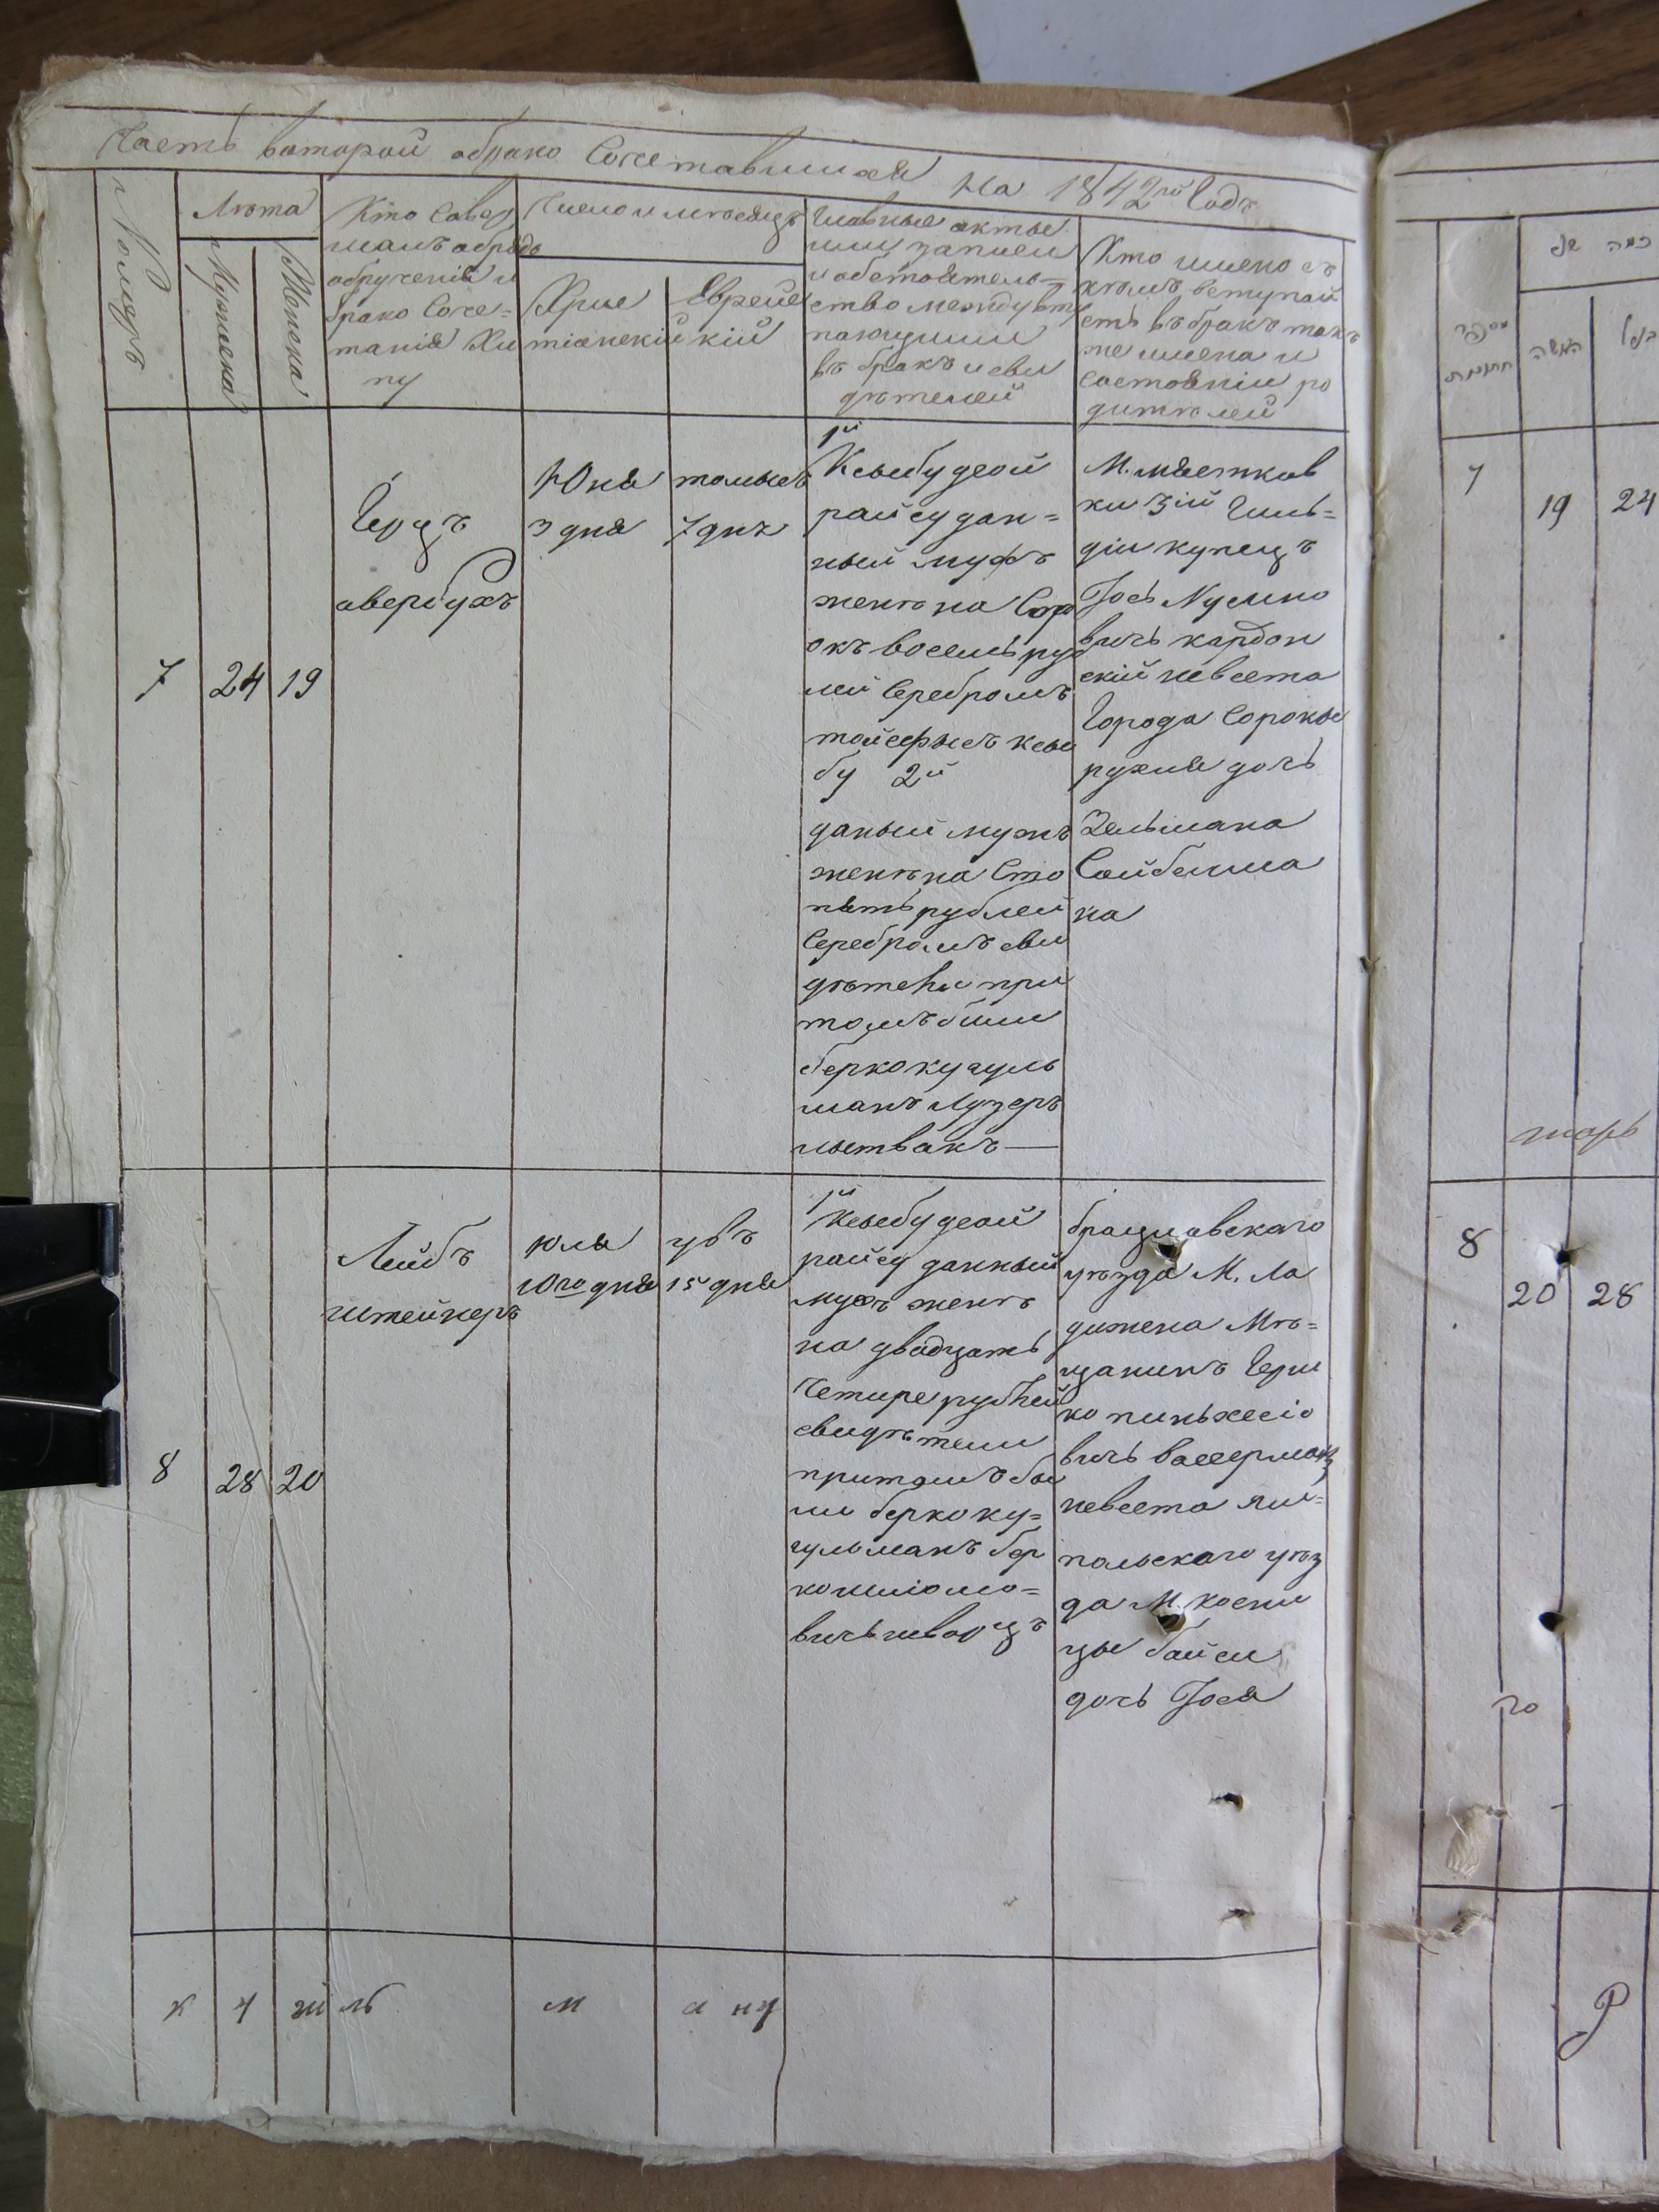 Часть вторая о бракосочетавшихся На 1842й Годъ
Номеръ
Лѣта
Мужеска
Женска
Кто Совер
шалъ обрядъ
обрученія и
брако Соче=
танія Хи
пу
Число и мѣсяцъ
Хрис
тіанскій
Еврейс
кій
Главные акты
или записи
и обстоятель=
ство между всту
пающими
въ бракъ и сви
дѣтелей
Кто имено съ
кѣмъ вступай
етъ въ бракъ так
же имена и
состояніи ро
дителей
7
24
19
Герцъ
авербухъ
Юня
3 дня
томысъ
7 днъ
1й
Ксыбу деой
райсу дан=
ный мужъ
женѣ на Соро
окъ восемь руб
лей Серебромъ
тойсфысъ ксы
бу 2й
даный мужъ
женѣ на Сто
пять рублей
Серебромъ сви
дѣтели при
томъ били
берко кугуль
манъ Лузеръ
лытвакъ —
М. мястков
ки 3ій Гиль=
діи купецъ
Іось Нусино
вичь кардон
скій невеста
Города Сороки
рухля дочь
Зельмана
Сойбельма
на
8
28
20
Лейбъ
штейнеръ
юля
10го дня
увъ
15 дня
1й
Ксыбу деой
райсу данный
мужъ женѣ
на двадцать
Четире рублей
свидѣтели
притомъ бы
ли берко ку=
гульманъ бер
ко шліомо=
вичь шварцъ
брацлавскаго
уѣзда М. Ла
дижена Мѣ=
щанинъ Герш
ко пинхесіо
вичь вассерманъ
невеста ям=
польскаго уѣз
да М. косни
цы бойси
дочь Іося
к
ч
ш
ль
м
а ну
מספר
חתונות
כמה שנ
האשה
7
19
24
8
20
28
го
Р